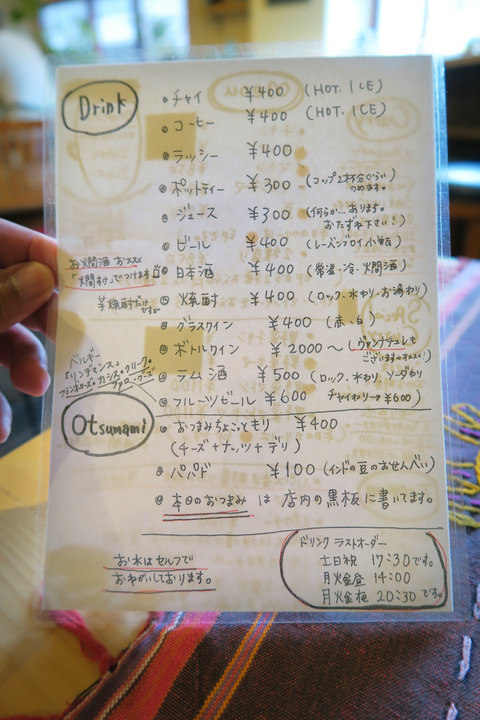 Drink
チャイ ¥400 (HOT. ICE)
コーヒー ¥400 (HOT. ICE)
ラッシー ¥400
ポットティー ¥300 (コップ2杯分ぐらい
のめます。)
ジュース ¥300 (何らか…あります。
おたずね下さい!)
ビール ¥400 (レーベンブロイ小瓶)
お燗酒 おススメ
「燗すけ」でつけます
日本酒 ¥400 (常温・冷・燗酒)
芋焼酎だけ
ですが
焼酎 ¥400 (ロック、水わり、お湯わり)
グラスワイン ¥400 (赤、白)
ボトルワイン ¥2000〜 (ヴァンナチュレも
ございます)
ラム酒 ¥500 (ロック、水わり、ソーダわり
チャイわり→¥600)
ベルギー
「リンデマンス」
カシス・クリーク
フルーツビール ¥600
Otsumami
おつまみちょこっともり ¥400
(チーズ+ナッツ+デリ)
パパド ¥100 (インドの豆のおせんべい)
本日のおつまみ は 店内の黒板に書いてます。
お水はセルフで
おねがいしております。
ドリンク ラストオーダー
土日祝 17:30です。
月火金昼 14:00
月火金夜 20:30です。